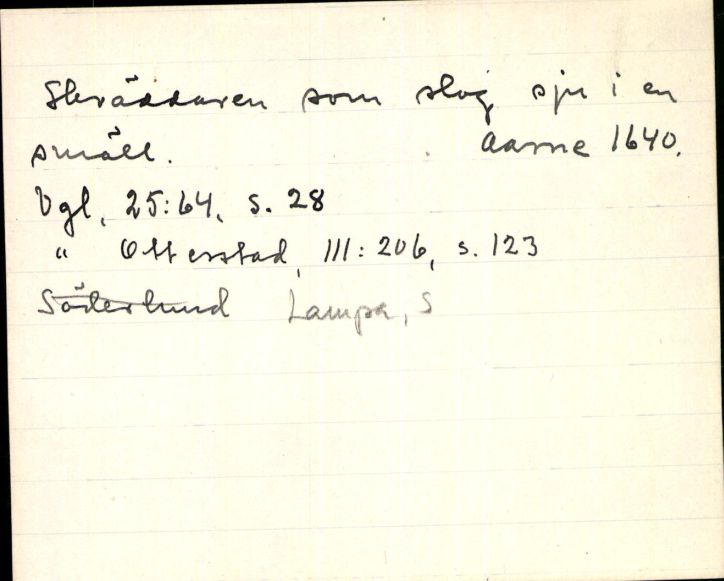 Skräddaren som slog sju i en
smäll. Aarne 1640.
Vgl, 25:64, s. 28
" Otterstad, III: 206, s. 123
Söderlund Lampa, S